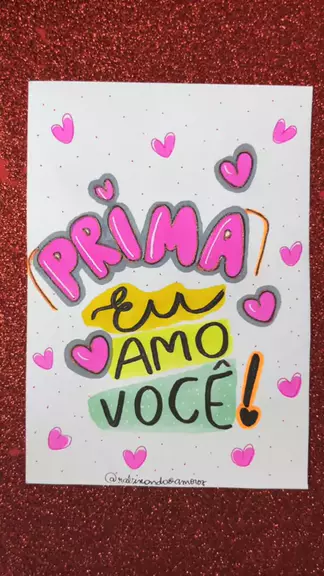 PRIMA
EU
AMO
VOCÊ!